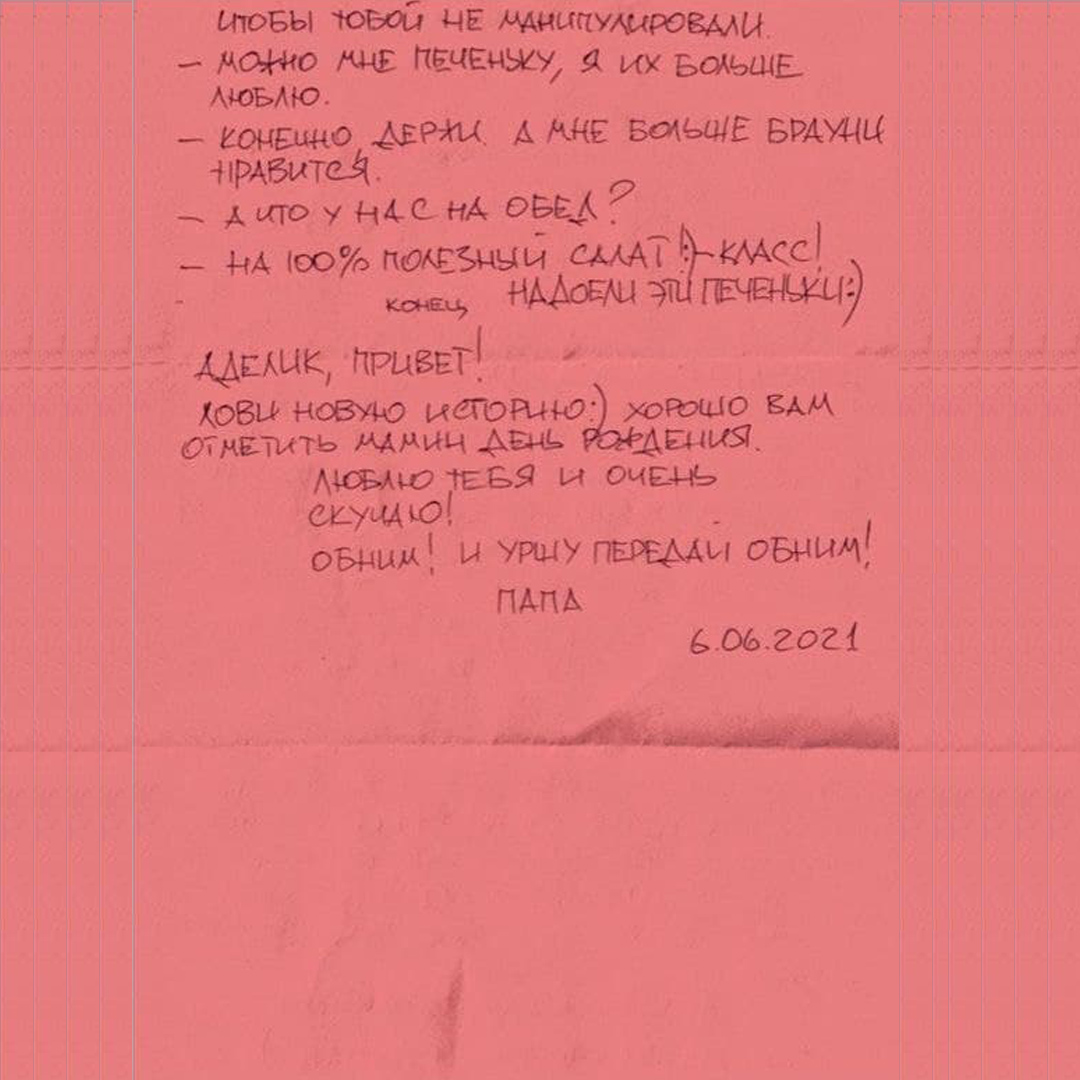 ЧТОБЫ ТОБОЙ НЕ МАНИПУЛИРОВАЛИ.
– МОЖНО МНЕ ПЕЧЕНЬКУ, Я ИХ БОЛЬШЕ
ЛЮБЛЮ.
– КОНЕЧНО, ДЕРЖИ. А МНЕ БОЛЬШЕ БРАУНИ
НРАВИТСЯ.
– А ЧТО У НАС НА ОБЕД?
– НА 100% ПОЛЕЗНЫЙ САЛАТ!:) – КЛАСС!
КОНЕЦ НАДОЕЛИ ЭТИ ПЕЧЕНЬКИ:)
АДЕЛИК, ПРИВЕТ!
ЛОВИ НОВУЮ ИСТОРИЮ:) ХОРОШО ВАМ
ОТМЕТИТЬ МАМИН ДЕНЬ РОЖДЕНИЯ.
ЛЮБЛЮ ТЕБЯ И ОЧЕНЬ
СКУЧАЮ!
ОБНИМ! И УРШУ ПЕРЕДАЙ ОБНИМ!
ПАПА
6.06.2021